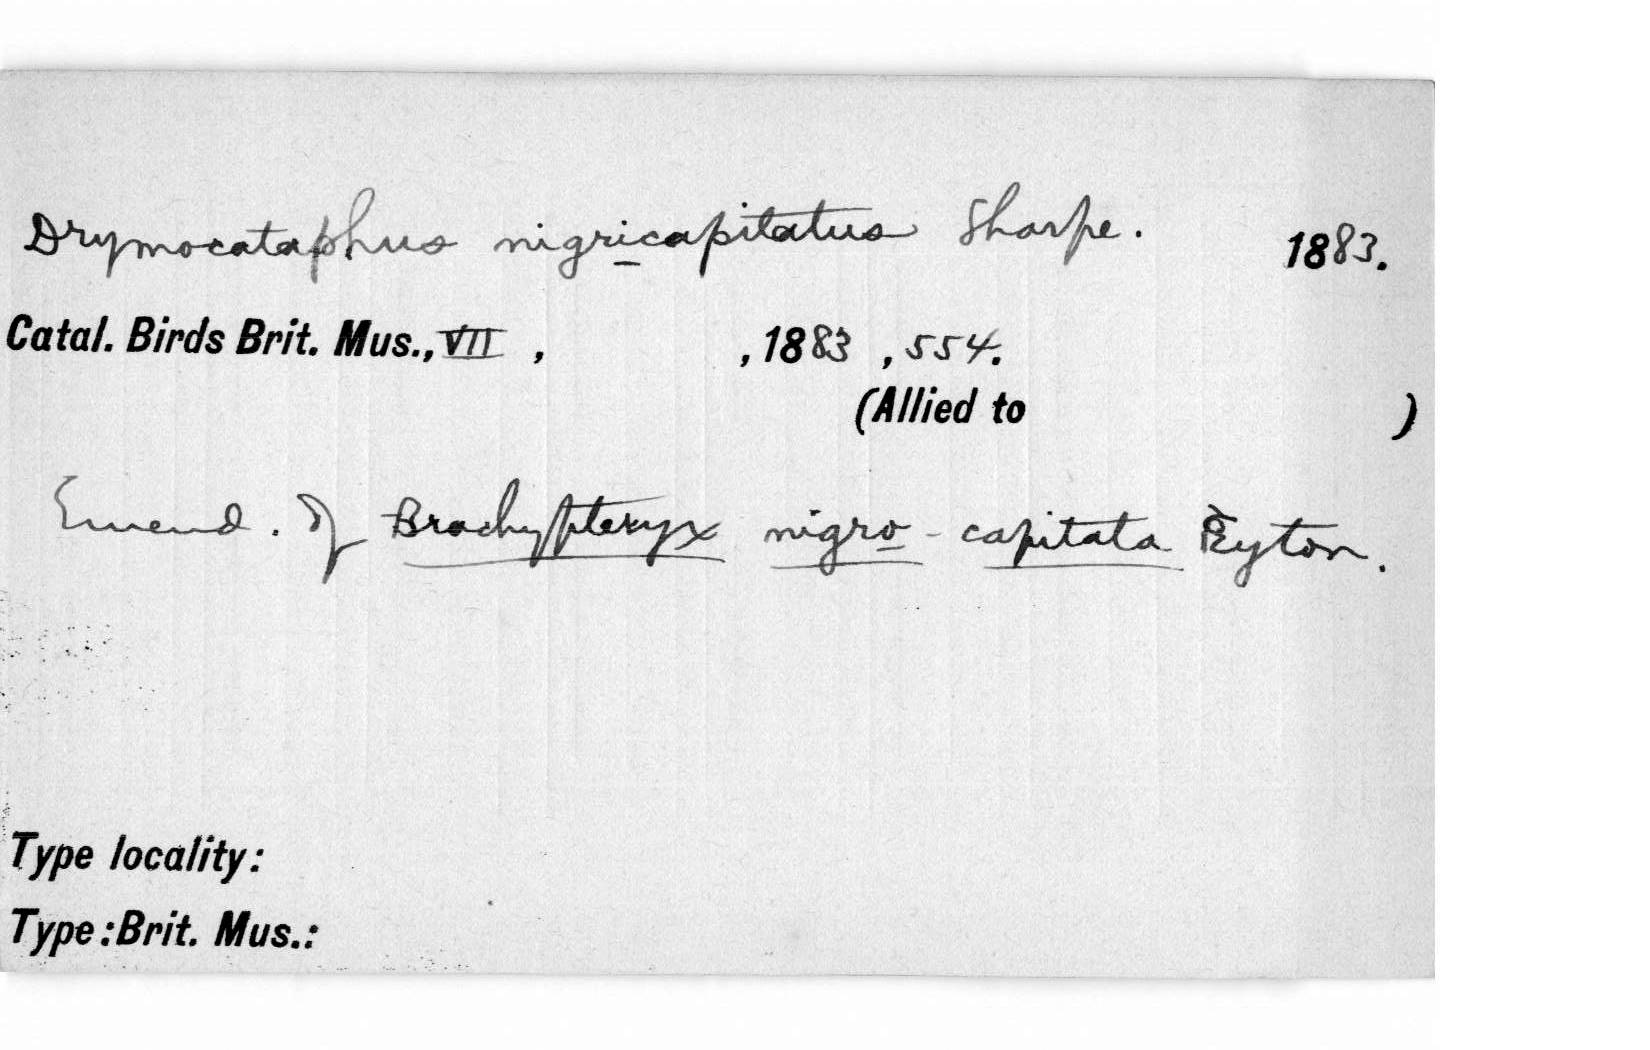 Drymocataphus nigricapitatus Sharpe. 1883.
Catal. Birds Brit. Mus., VII , , 1883 , 554.
(Allied to )
Emend. of Brachypteryx nigro-capitata Eyton.
Type locality:
Type: Brit. Mus.: